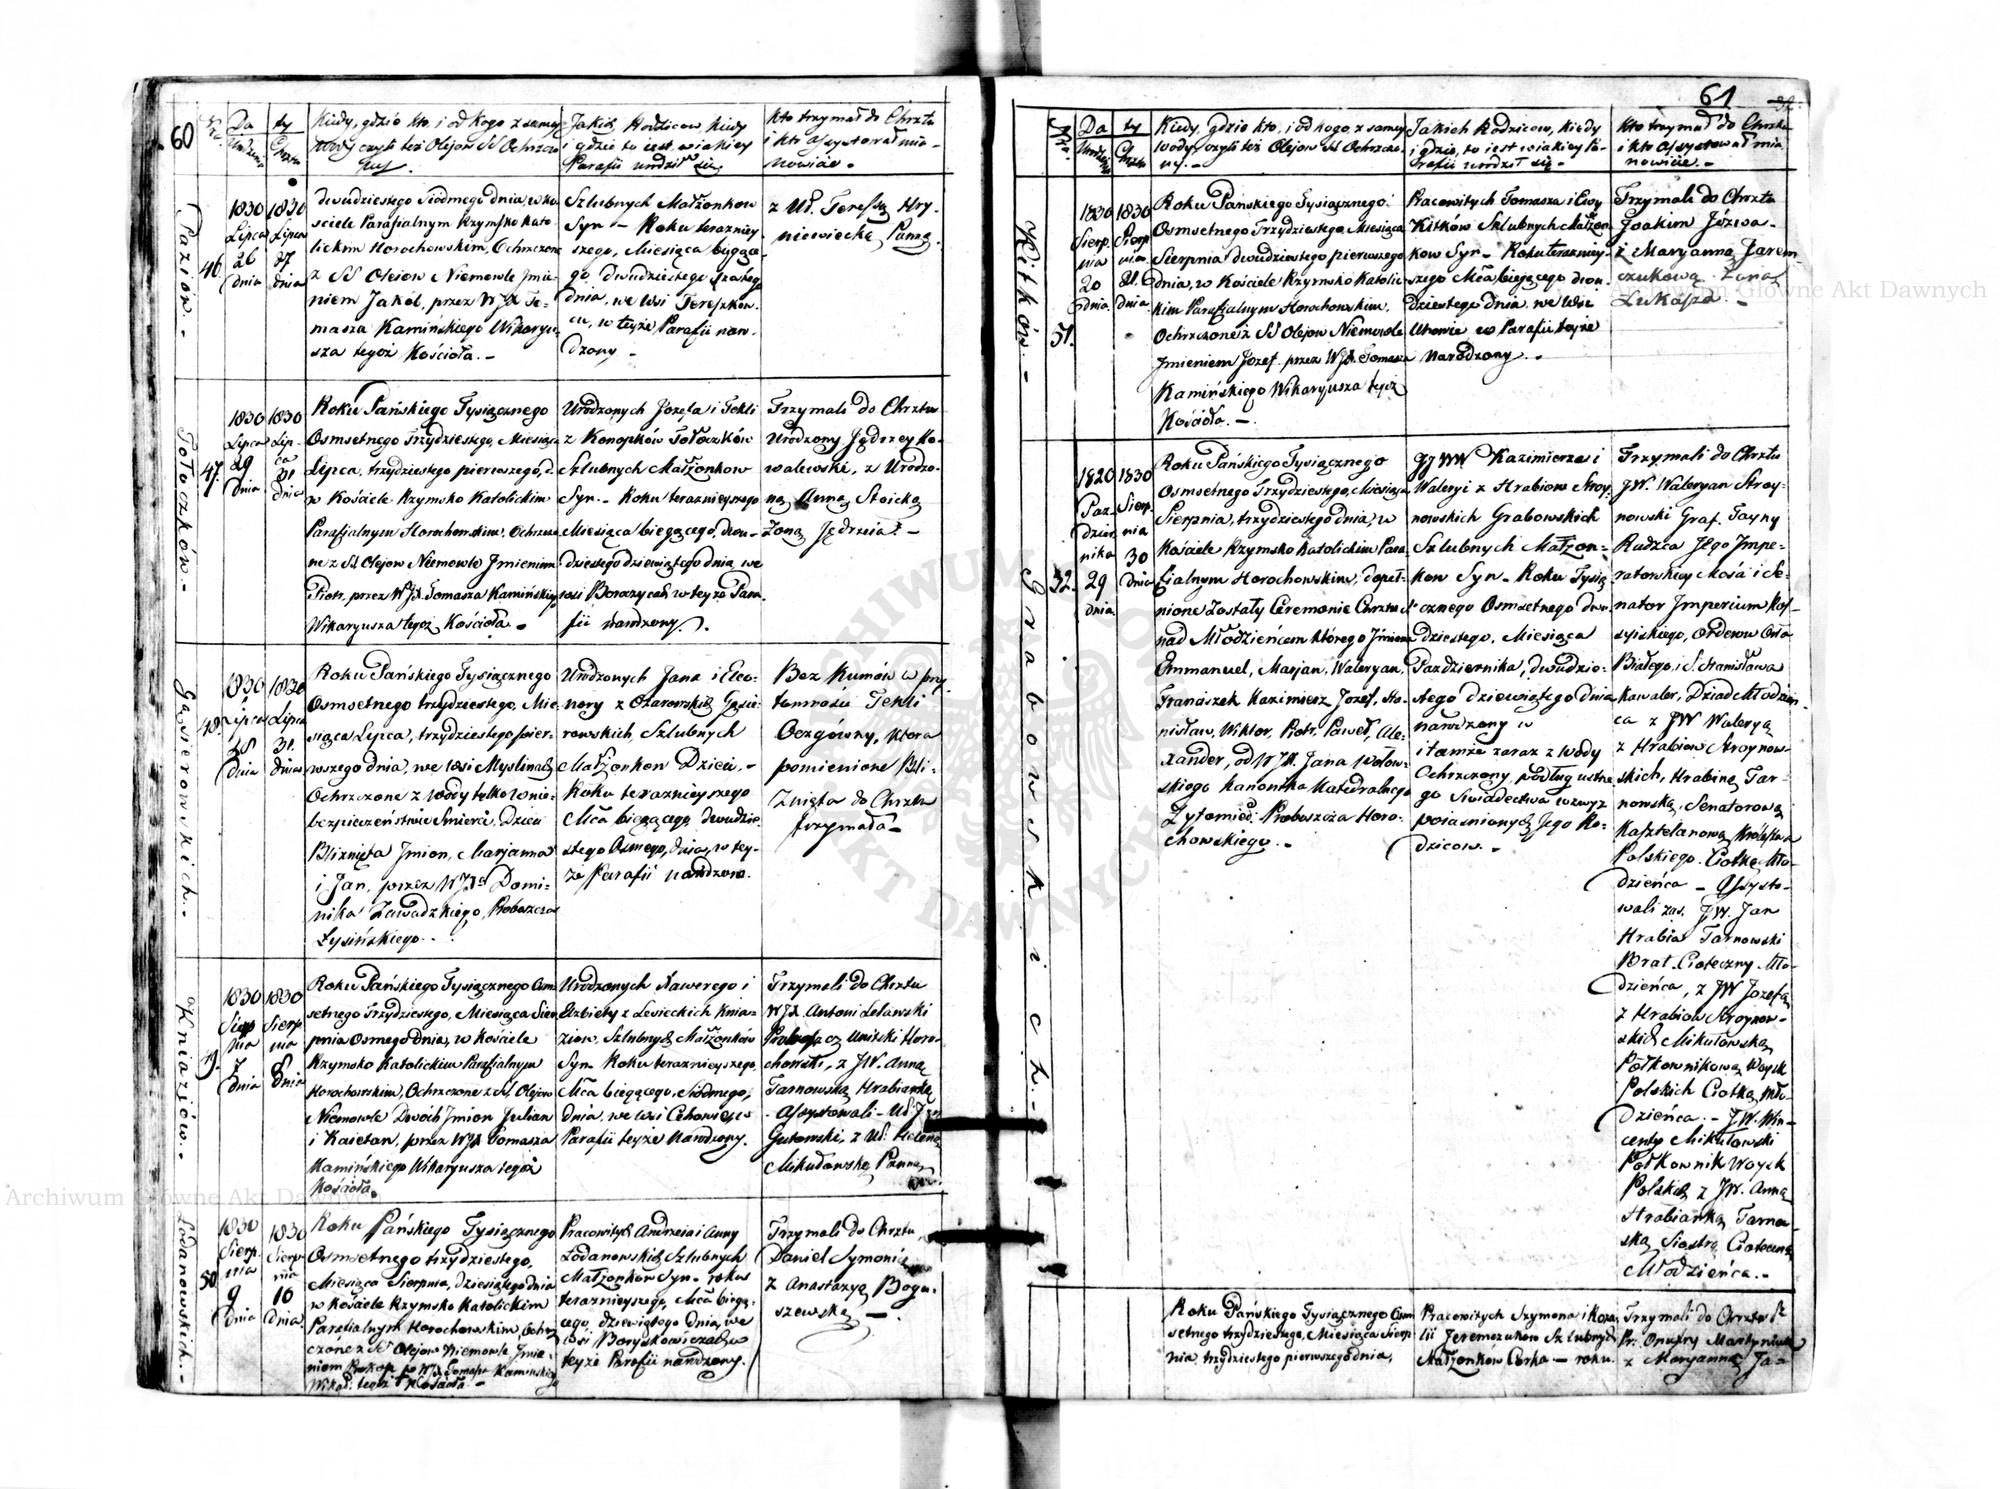 60
Nra.
Da
ty
Urodzenia
Chrztu
Kiedy, gdzie kto, i od Kogo z samey
Wody czyli też Olejow SS Ochrzczo
ny.
Jakich Rodzicow, kiedy
i gdzie to iest w iakiey
Parafii urodził się
Kto trzymał do Chrztu
i kto assystował mia-
nowicie.
Paziow. -
46.
1830
Lipca
26
dnia
1830
Lipca
27
dnia
dwudziestego Siodmego dnia, w Ko
sciele Parafialnym Rzymsko Kato
lickim Horochowskim, Ochrzczone
z SS Olejow Niemowle Jmie-
niem Jakob, przez WJX To-
masza Kamińskiego Wikaryu-
sza tegoż Kościoła. -
Szlubnych Małżonkow
Syn - Roku terazniey
szego, Miesiąca biegące-
go, dwudziestego szostego
dnia, we Wsi Tereszkow-
cu, w teyże Parafii naro-
dzony -
z Ur. Teressą Hry-
niewiecką Panną.
Tołoczków. -
47.
1830
Lipca
29
dnia
1830
Lip-
ca
31
dnia
Roku Pańskiego Tysiącznego
Osmsetnego Trzydziestego Miesiąca
Lipca, trzydziestego pierwszego, d.
w Kościele Rzymsko Katolickim
Parafialnym Horochowskim, Ochrzczo
ne z SS Olejow Niemowle Jmieniem
Piotr, przez WJX Tomasza Kamińskiego
Wikaryusza tegoż Kościoła. -
Urodzonych Jozefa i Tekli
z Konopków Tołoczków
Szlubnych Małżonkow
Syn. - Roku teraznieyszego
Miesiąca biegącego, dwu-
dziestego dziewiątego dnia, we
wsi Boroczycach w teyże Para
fii narodzony.
Trzymali do Chrztu
Urodzony Jędrzey Ko-
walewski, z Urodzo-
ną Anną Stoicką
Żoną Jędrzeia. -
Gąsierowskich. -
48.
1830
Lipca
28
dnia
1830
Lipca
31.
dnia
Roku Pańskiego Tysiącznego
Osmsetnego trzydziestego, Mie
siąca Lipca, trzydziestego pier-
wszego dnia, we wsi Myslinach
Ochrzczone z wody tylko w nie-
bezpieczeństwie Smierci, Dzieci
Bliznięta Jmion, Marjanna
i Jan, przez WJXa Domi-
nika Zawadzkiego, Proboszcza
Łysińskiego. -
Urodzonych Jana i Eleo-
nory z Ożarowskich Gąsie-
rowskich, Szlubnych
Małżonkow Dzieci, -
Roku teraznieyszego
Mca biegącego, dwudzie-
stego Osmego, dnia, w tey-
że Parafii narodzone.
Bez Kumów w przy
tomności Tekli
Oczgówny, ktora
pomienione Bli-
znięta do Chrztu
trzymała -
Kniaziów. -
49.
1830
Sierp
nia
7
dnia
1830
Sierp
nia
8
dnia
Roku Pańskiego Tysiącznego Osm
setnego Trzydziestego, Miesiąca Sier
pnia Osmego Dnia, w Kościele
Rzymsko Katolickim Parafialnym
Horochowskim, Ochrzczone z SS Olejow
Niemowle Dwoch Jmion Julian
i Kaietan, przez WJX Tomasza
Kamińskiego Wikaryusza tegoż
Kościoła.
Urodzonych Xawerego i
Elzbiety z Lesieckich Knia-
ziow, Szlubnych Małżonków
Syn - Roku teraznieyszego,
Mca biegącego, Siodmego,
dnia, we wsi Cehowie w
Parafii teyże Narodzony.
Trzymali do Chrztu
WJX Antoni Lelawski
Proboszcz Unitski Horo-
chowski, z JW. Anną
Tarnowską Hrabianką
- Assystowali - Ur. Jan
Gutowski, z Ur. Heleną
Mikułowską Panną
Łodanowskich. -
50.
1830
Sierp.
nia
9
dnia
1830
Sierp.
nia
10
dnia.
Roku Pańskiego Tysiącznego
Osmsetnego trzydziestego,
Miesiąca Sierpnia, dziesiątego dnia
w Kościele Rzymsko Katolickim
Parafialnym Horochowskim, Ochrz
czone z SS Olejow Niemowle Jmie-
niem Prokop przez WJX Tomasza Kamińskiego
Wikar: tegoż Kościoła. -
Pracowitych Andrzeia i Anny
Łodanowskich Szlubnych
Małżonkow Syn - roku
teraznieyszego, Mca biegą-
cego, dziewiątego dnia, we
wsi Boryskowiczach w
teyże Parafii narodzony.
Trzymali do Chrztu,
Daniel Symoni
z Anastazyą Bogu-
szewską -
61
Nra.
Da
ty
Urodzenia
Chrztu
Kiedy, gdzie kto, i od kogo z samey
wody, czyli też Olejow SS Ochrzczo-
ny. -
Jakich Rodzicow, kiedy
i gdzie, to iest w iakiey Pa-
rafii urodził się -
Kto trzymał do Chrztu
i kto assystował mia
nowicie. -
Kitków. -
51.
1830
Sierp
nia
20
dnia
1830
Sierp
nia
21.
dnia
Roku Pańskiego Tysiącznego
Osmsetnego Trzydziestego, Miesiąca
Sierpnia dwudziestego pierwszego
dnia, w Kościele Rzymsko Katolic-
kim Parafialnym Horochowskim,
Ochrzczone z SS Olejow Niemowle
Jmieniem Jozef, przez WJX Tomasza
Kamińskiego Wikaryusza tegoż
Kościoła. -
Pracowitych Tomasza i Ewy
Kitków Szlubnych Małżon
kow Syn - Roku teraznieyszego
szego Mca, biegącego dwu-
dziestego dnia, we Wsi
Uhowie w Parafii teyże
Narodzony. -
Trzymali do Chrztu
Joakim Józwa -
z Maryanną Jarem
czukową Żoną
Łukasza -
Grabowskich. -
52.
1820
Paz-
dzier
nika
29
dnia
1830
Sierp-
nia
30
dnia
Roku Pańskiego Tysiącznego
Osmsetnego Trzydziestego, Miesiąca
Sierpnia, trzydziestego dnia, w
Kościele Rzymsko Katolickim Para
fialnym Horochowskim, dopeł-
nione zostały Ceremonie Chrztu S
nad Młodzieńcem którego Jmiona
Emmanuel, Marjan, Waleryan,
Franciszek Kazimierz Jozef, Sta-
nisław, Wiktor, Piotr, Paweł, Ale-
xander, od WJX. Jana Wołow-
skiego Kanonika Katedralnego
Żytomie: Proboszcza Horo-
chowskiego. -
JJ WW Kazimierza i
Waleryi z Hrabiow Stroy-
nowskich Grabowskich
Szlubnych Małżon-
kow Syn - Roku Tysią
cznego Osmsetnego dwu-
dziestego, Miesiąca
Pazdziernika, dwudzie-
stego dziewiątego dnia
narodzony w
i tamże zaraz z Wody
Ochrzczony, podług ustne
go Swiadectwa wzwyz
poiasnionych Jego Ro-
dzicow. -
Trzymali do Chrztu
JW. Waleryan Stroy-
nowski Graf. Tayny
Radzca Jego Jmpe-
ratorskiey Mości i Se-
nator Jmperium Ros-
syiskiego, Orderow Orła
Białego, i S. Stanisława
Kawaler, Dziad Młodzień-
ca z JW Waleryą
z Hrabiow Stroynow-
skich, Hrabiną Tar-
nowską, Senatorową
Kasztelanową Krolestwa
Polskiego. Ciotką Mło-
dzieńca - Assysto-
wali zaś. JW. Jan
Hrabia Tarnowski
Brat. Cioteczny Mło-
dzieńca, z JW Jozefą
z Hrabiow Stroynow-
skich Mikułowską
Półkownikową Woysk
Polskich Ciotką Mło-
Dzieńca. - JW. Win-
centy Mikułowski
Półkownik Woysk
Polskich z JW. Anną
Hrabianką Tarnow-
ską Siostrą Cioteczną
Młodzieńca. -
Roku Pańskiego Tysiącznego Osm
setnego trzydziestego, Miesiąca Sierp
nia, trzydziestego pierwszego dnia,
Pracowitych Szymona i Roza-
lii Jeremczukow Szlubnych
Małżonków Corka - roku.
Trzymali do Chrztu S
Pr. Onufry Martyniuk
z Maryanną Ja-
Archiwum Główne Akt Dawnych
Archiwum Główne Akt Dawnych
ARCHIWUM GŁÓWNE AKT DAWNYCH